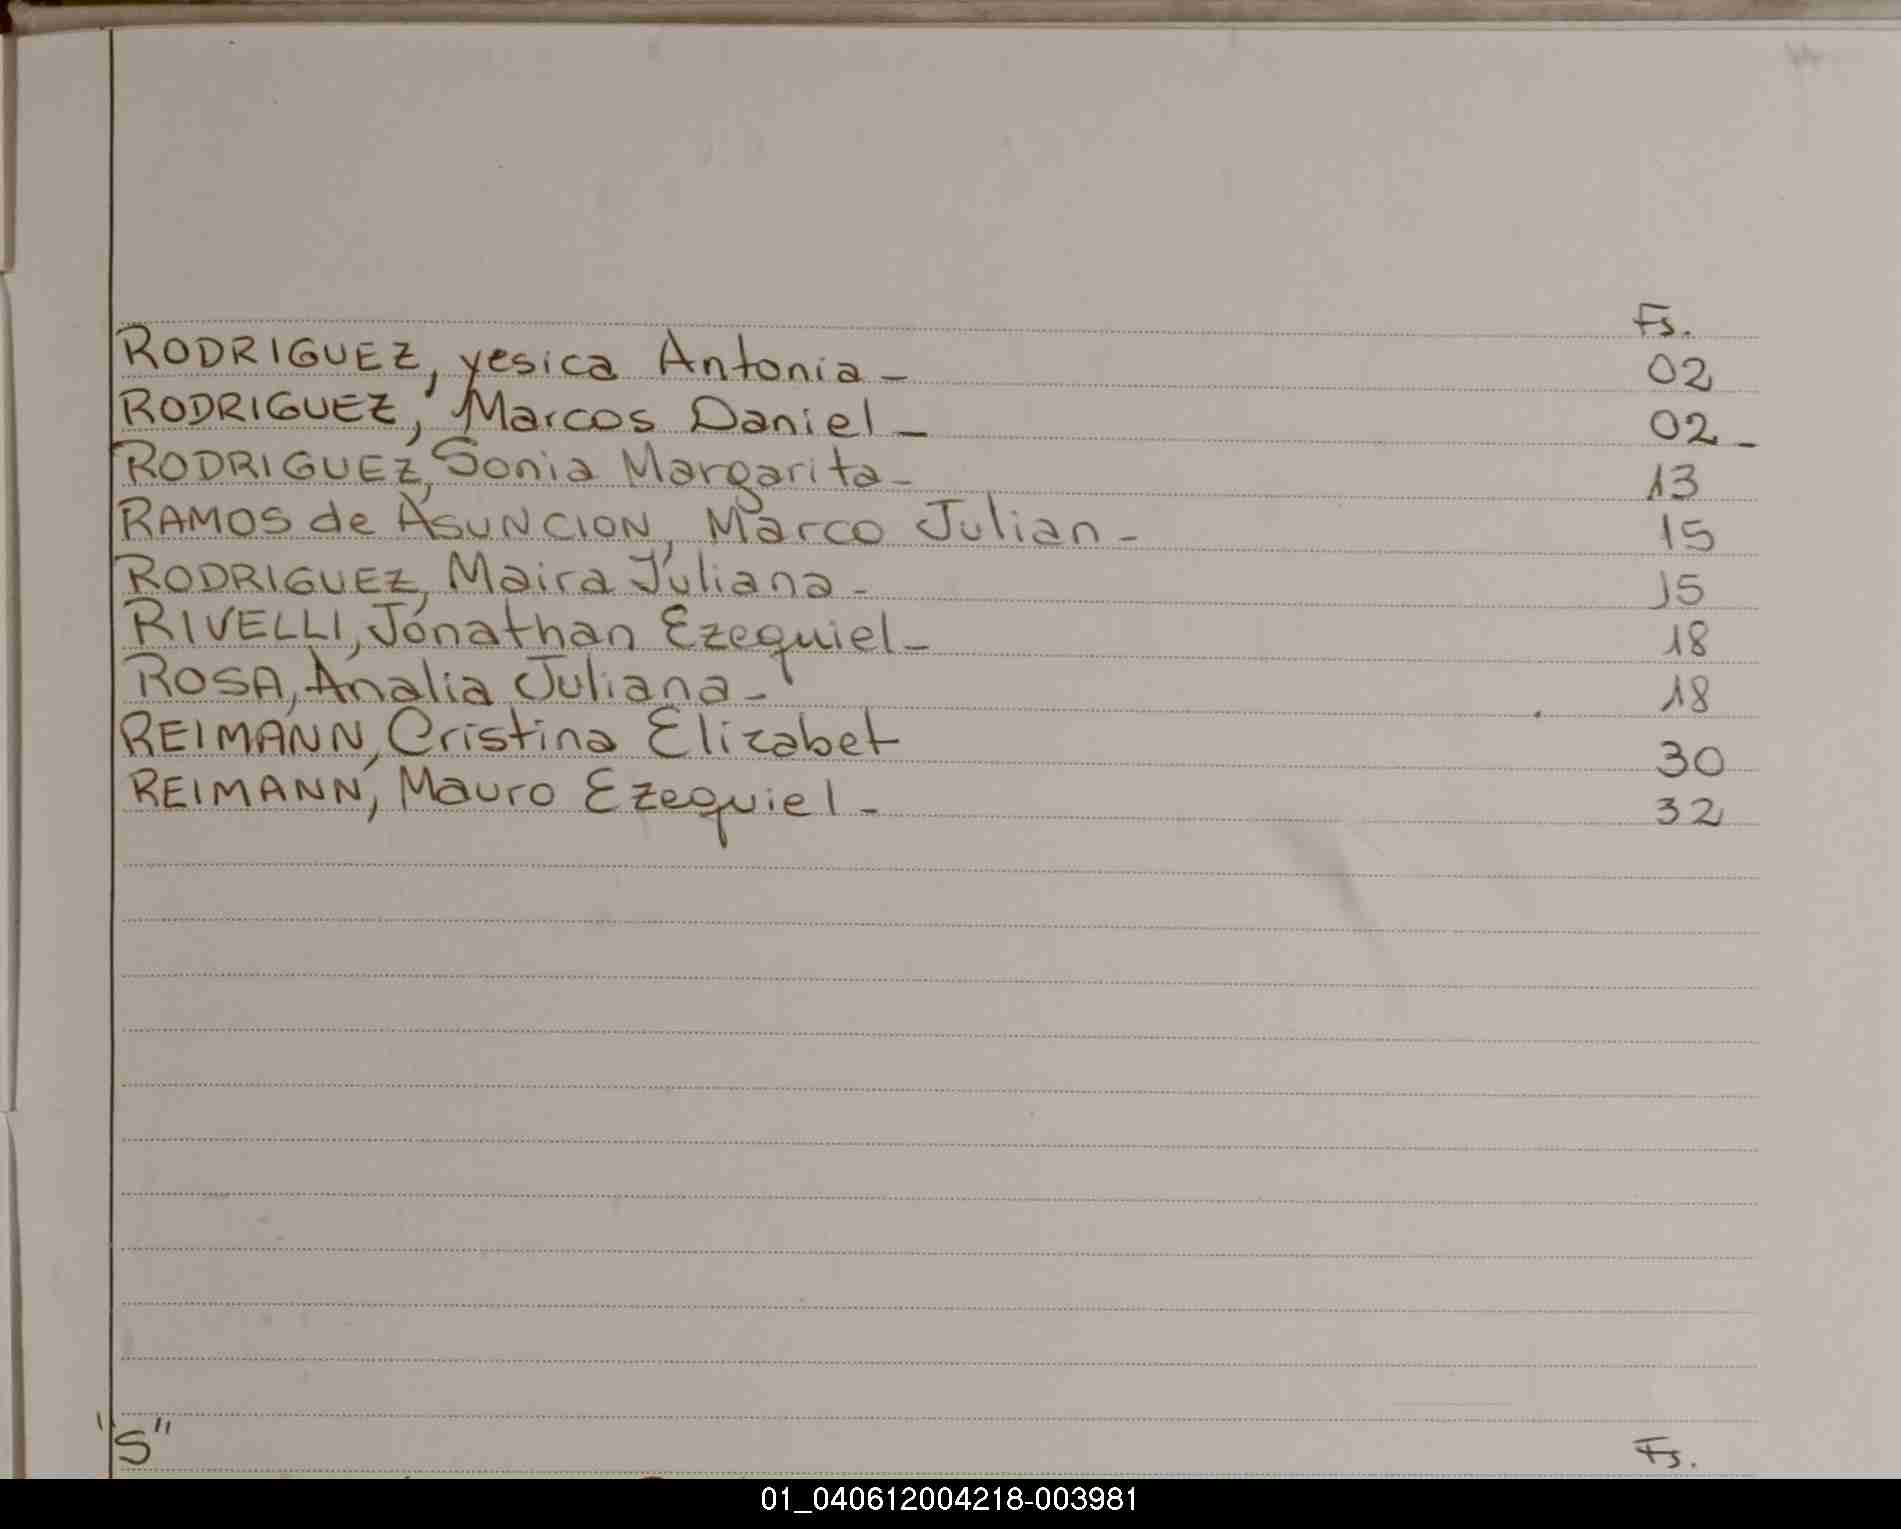 Fs.
RODRIGUEZ, yesica Antonia - 02
RODRIGUEZ, Marcos Daniel - 02 -
RODRIGUEZ, Sonia Margarita - 13
RAMOS de ASUNCION, Marco Julian - 15
RODRIGUEZ, Maira Juliana - 15
RIVELLI, Jonathan Ezequiel - 18
ROSA, Analia Juliana - 18
REIMANN, Cristina Elizabet 30
REIMANN, Mauro Ezequiel - 32
"S" Fs.
01_040612004218-003981